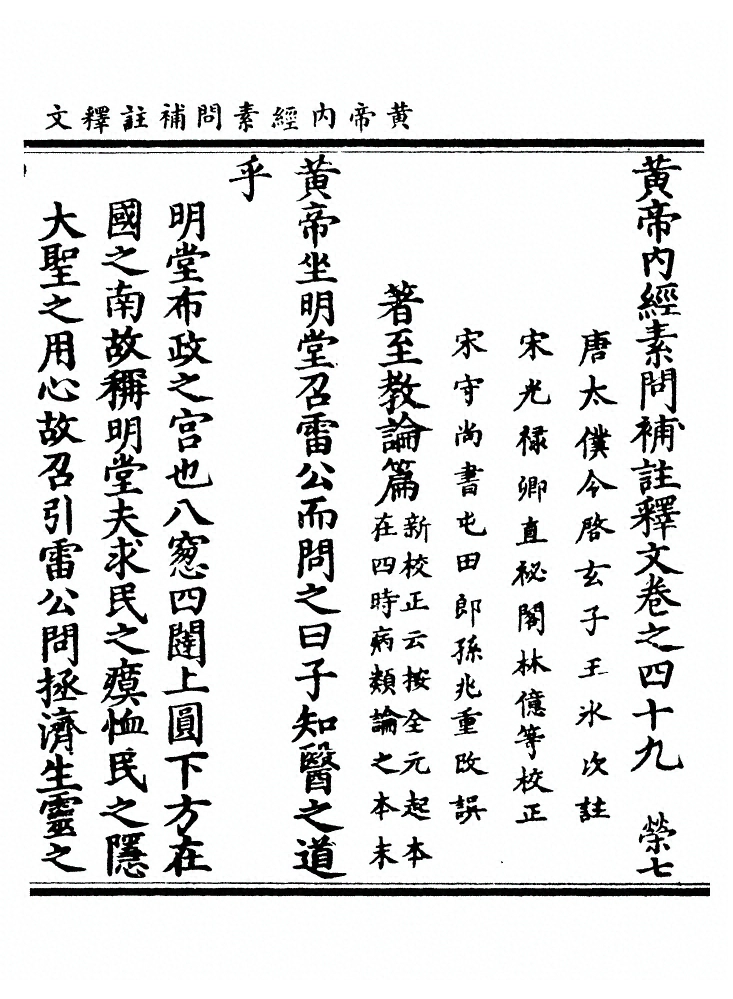 黄帝内經素問補註釋文
黄帝内經素問補註釋文卷之四十九 榮七
唐太僕令啓玄子王冰次註
宋光禄卿直祕閣林億等校正
宋守尚書屯田郎孫兆重改誤
著至教論篇新校正云按全元起本
在四時病類論之本末
黄帝坐明堂召雷公而問之曰子知醫之道
乎
明堂布政之宫也八窓四闥上圓下方在
國之南故稱明堂夫求民之瘼恤民之隱
大聖之用心故召引雷公問拯濟生靈之